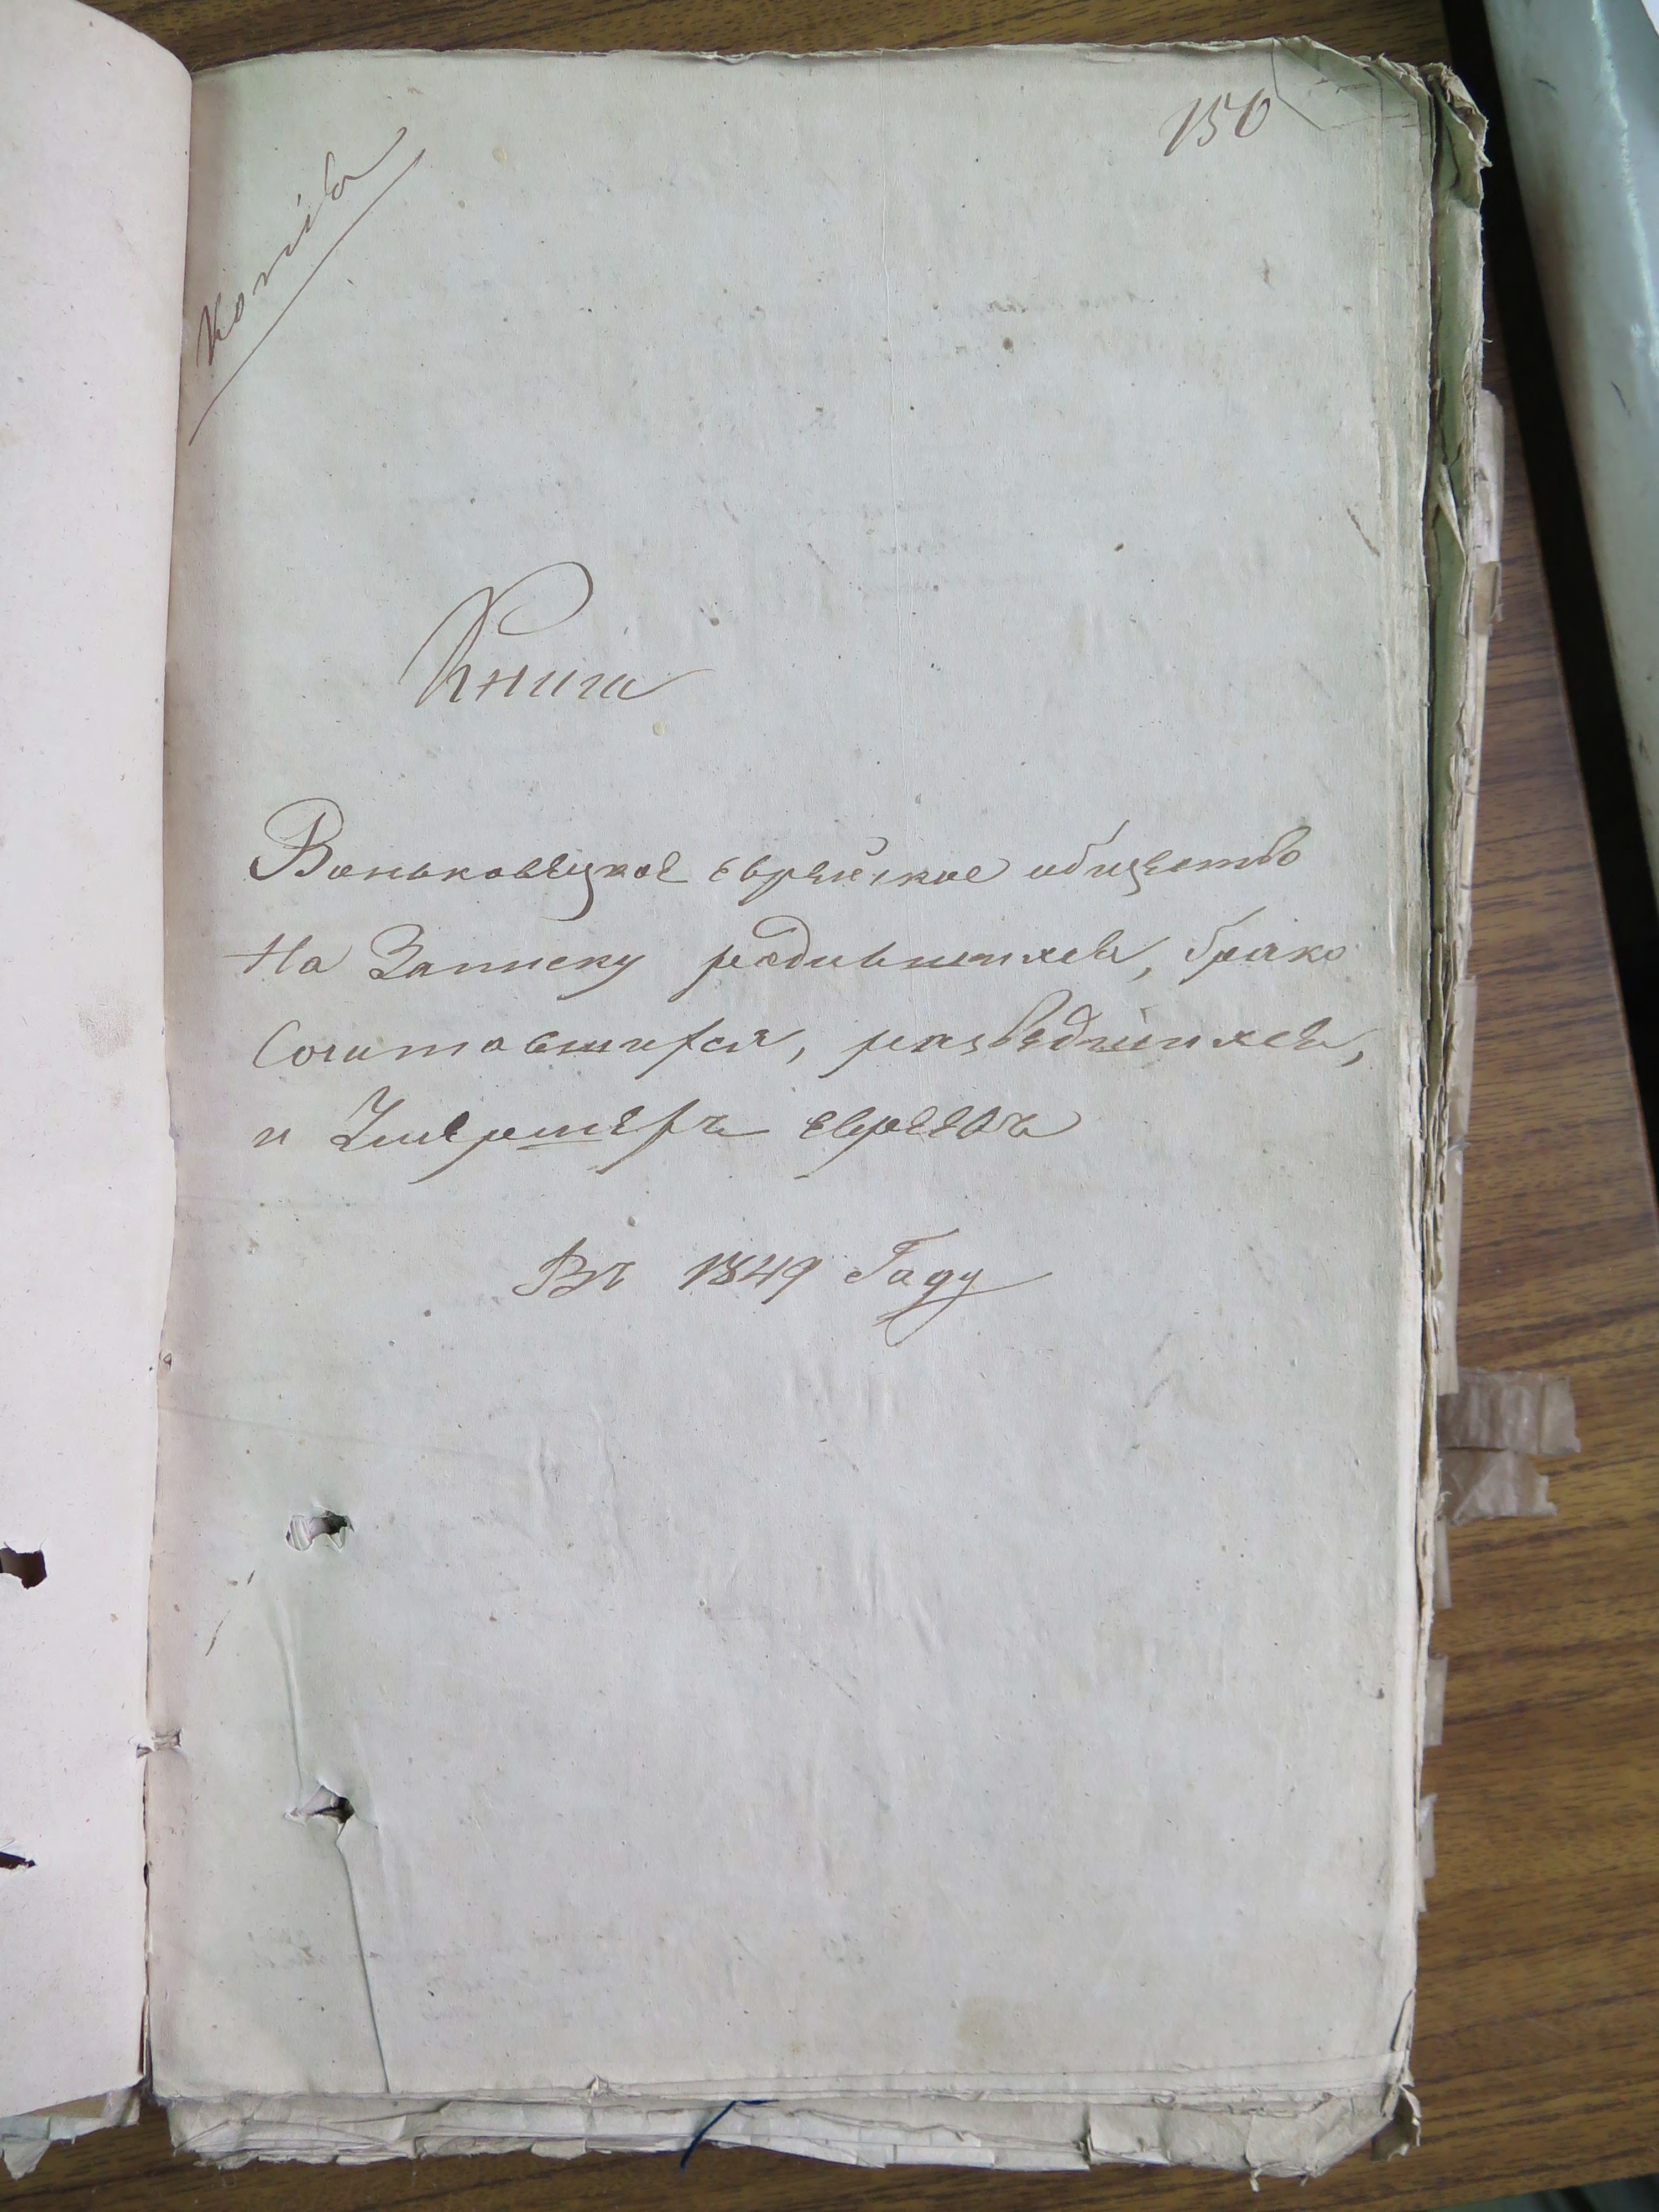 150
Копія
Книга
Ваньковецкое еврейское общество
На Записку родившихся, брако
Сочитавшихся, разведшихся,
и Умершехъ евреевъ
Въ 1849 Году